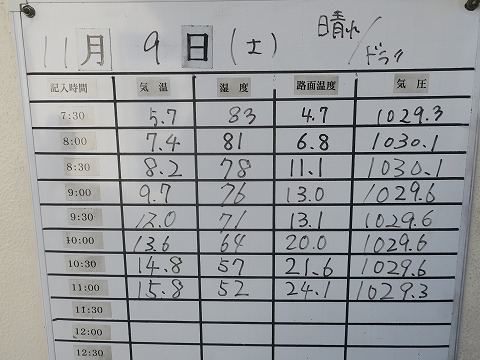 11月 9日(土) 晴れ/ドライ
記入時間 気温 湿度 路面温度 気圧
7:30 5.7 83 4.7 1029.3
8:00 7.4 81 6.8 1030.1
8:30 8.2 78 11.1 1030.1
9:00 9.7 76 13.0 1029.6
9:30 13.0 71 13.1 1029.6
10:00 13.6 64 20.0 1029.6
10:30 14.8 57 21.6 1029.6
11:00 15.8 52 24.1 1029.3
11:30
12:00
12:30